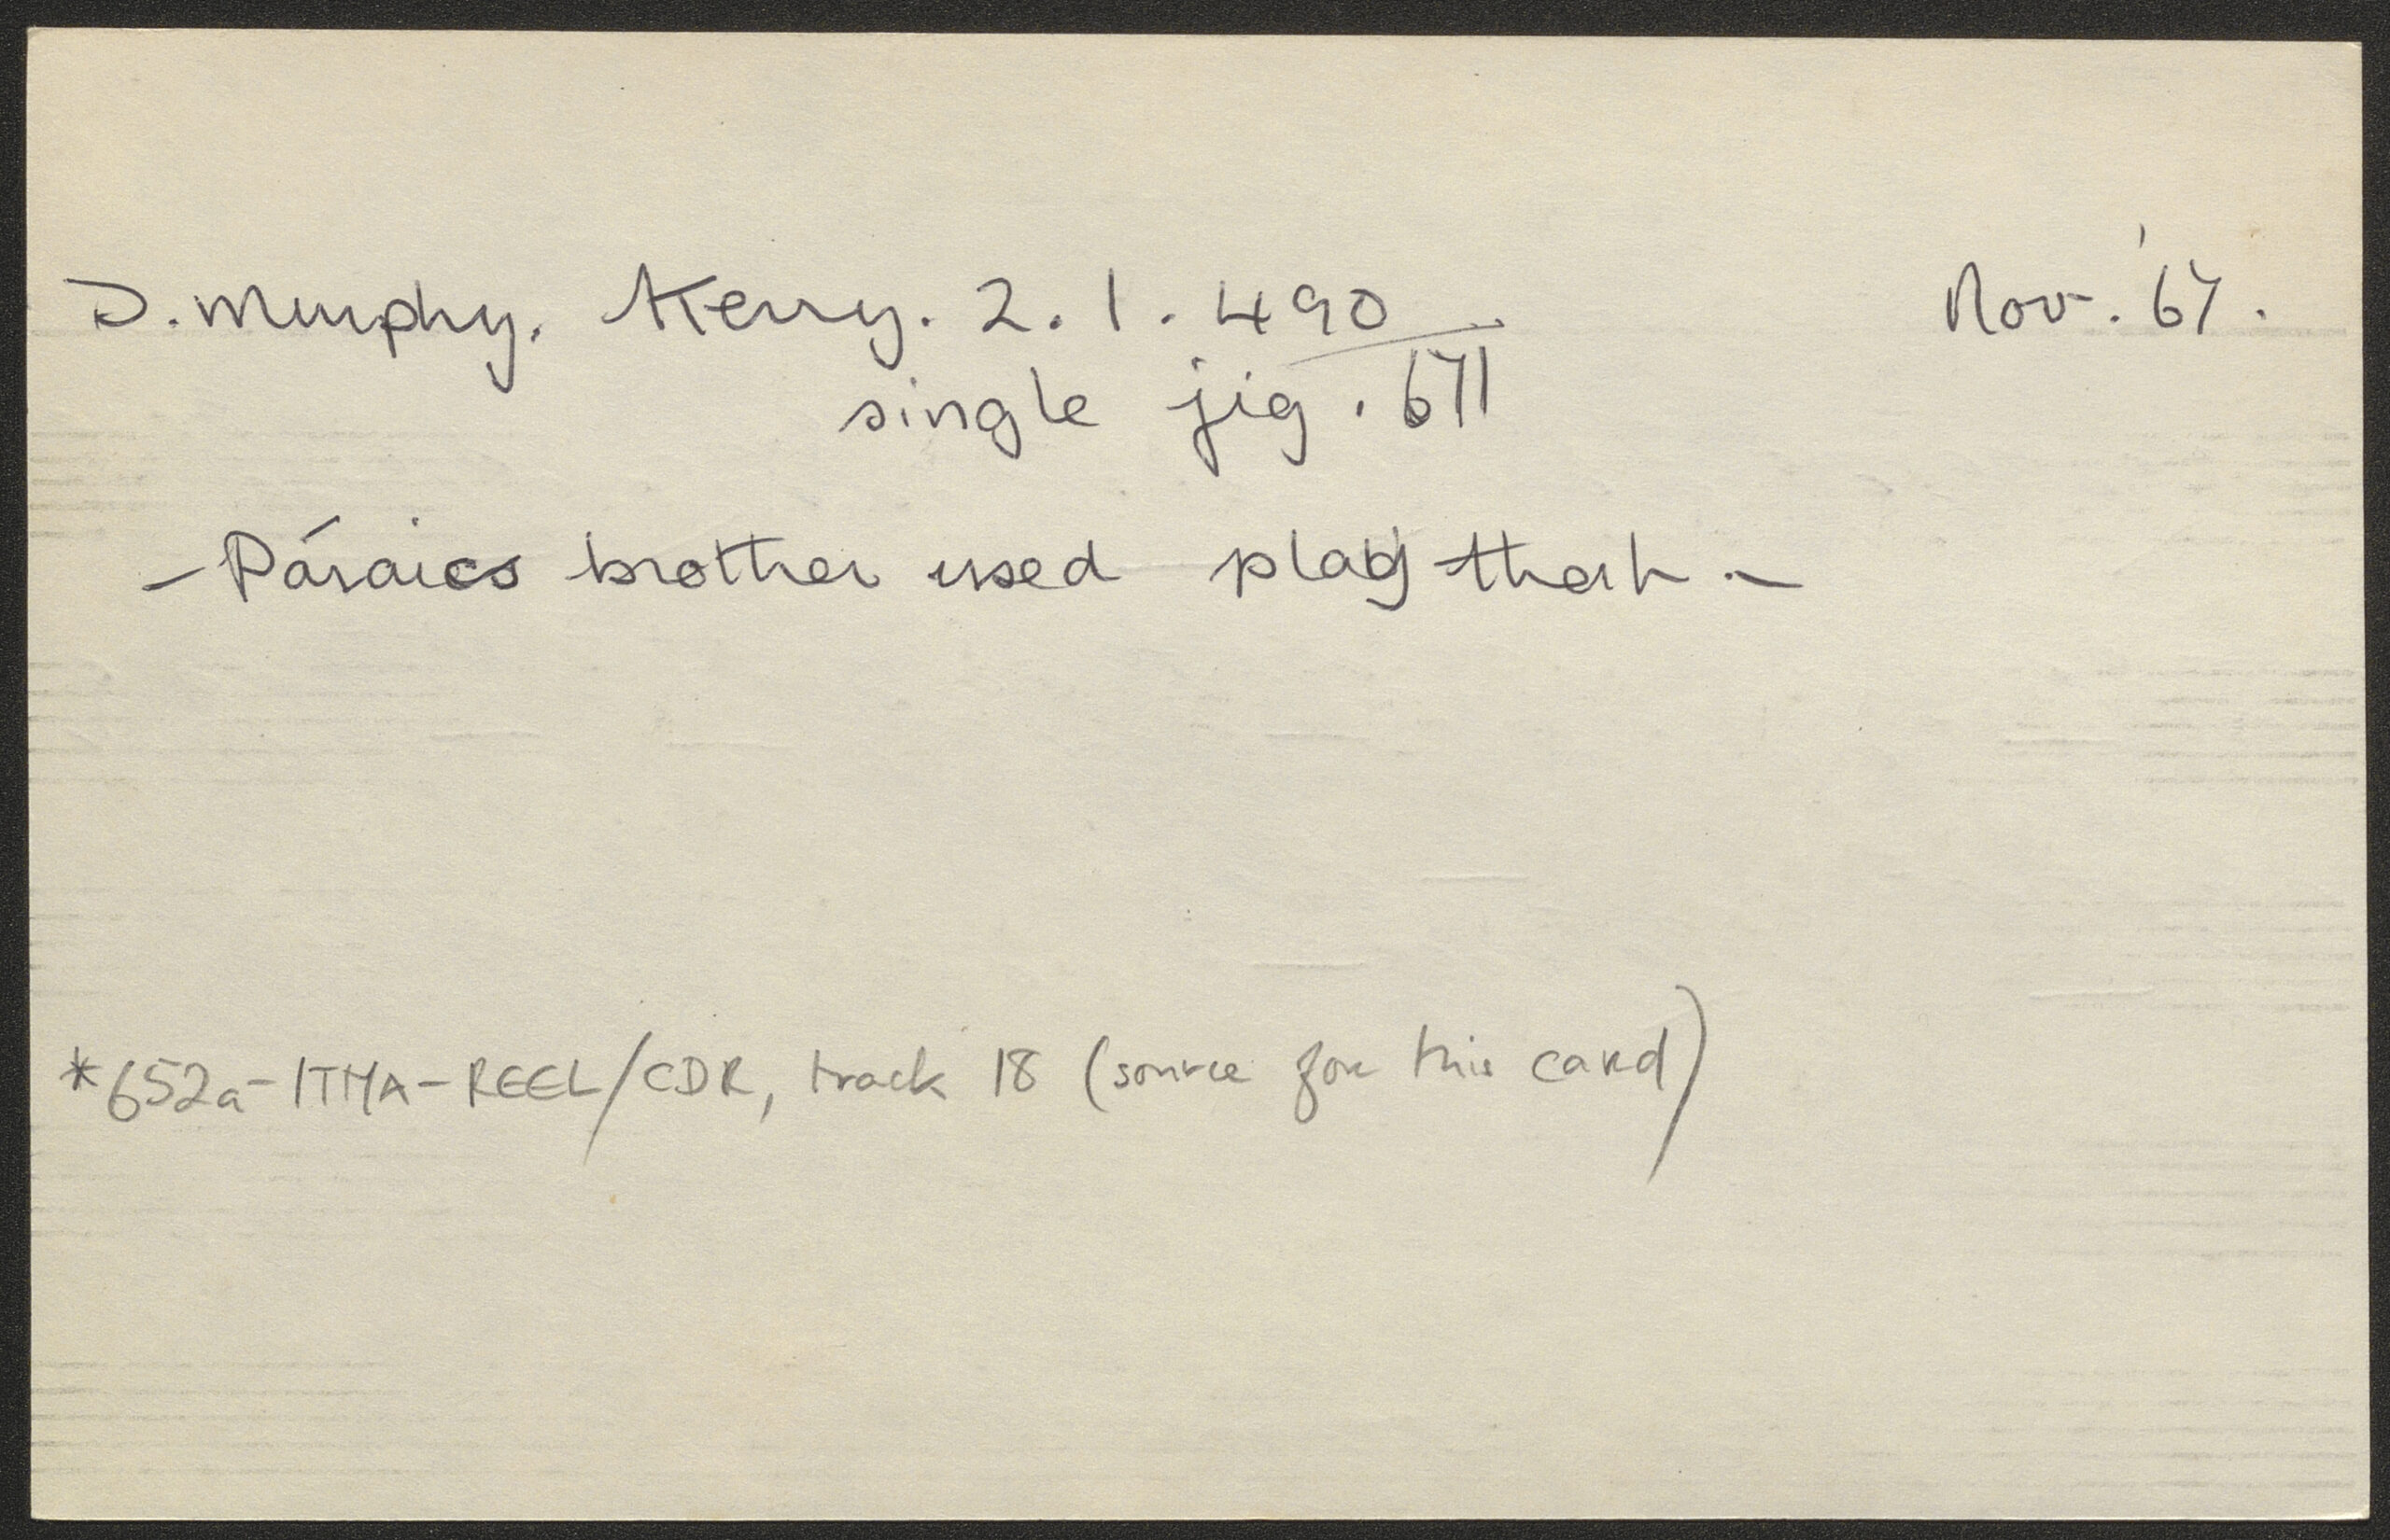 D. Murphy. Kerry. 2. 1. 490 Nov. '67.
single jig. 671
- Páraics brother used play that. -
*652a-ITMA-REEL/CDR, track 18 (source for this card)